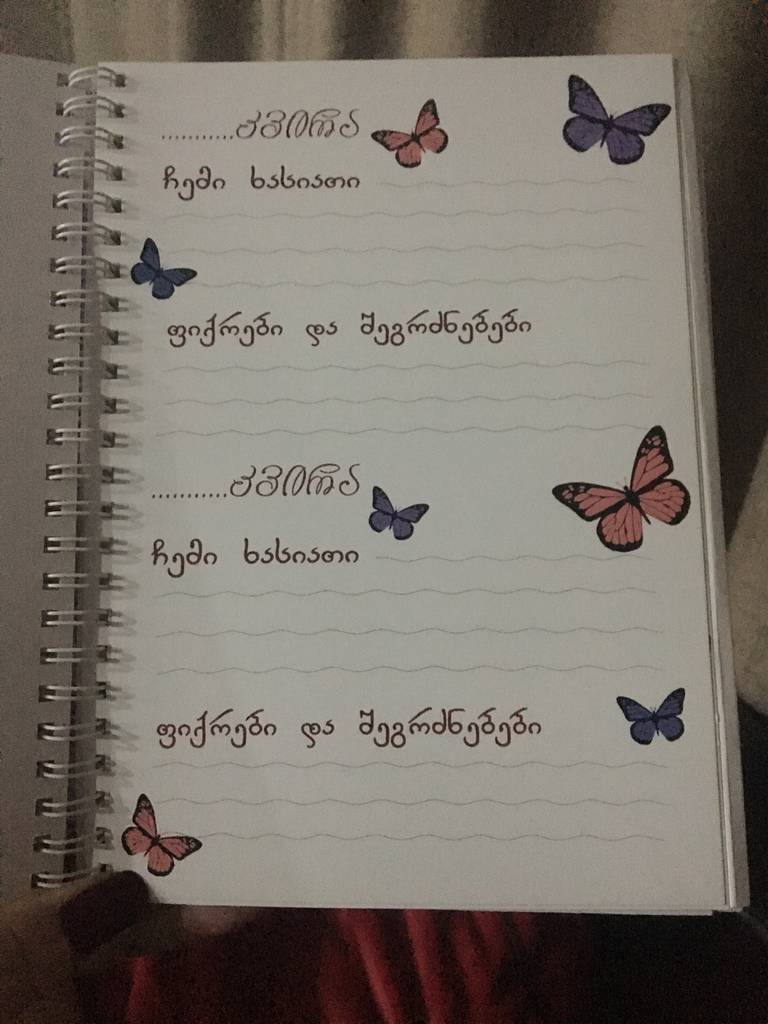 ...........კვირა
ჩემი ხასიათი
ფიქრები და შეგრძნებები
...........კვირა
ჩემი ხასიათი
ფიქრები და შეგრძნებები